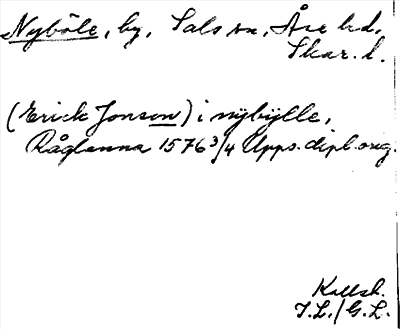 Nyböle, by, Sals sn, Åse hd,
Skar. l.
(Erick Jonson) i nÿbÿlle,
Råglanna 1576 3/4 Upps. dipl. orig.
Kollsh.
I.L./G.L.